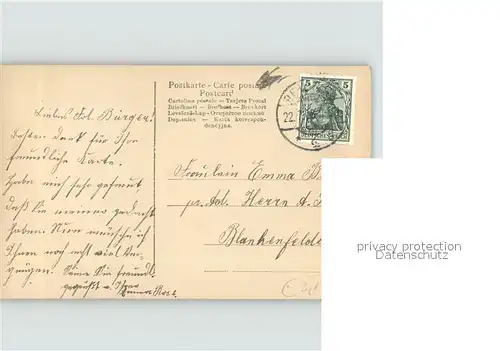 Postkarte - Carte postale
Postcard
Cartolina postale - Tarjeta Postal
Briefkaart - Brefkort - Brevkort
Levelező-Lap
Dopisnice - Karta korespon-
dencyjna.
5 5
22.
Liebes Frl. Bürger!
Besten Dank für Ihre
freundliche Karte.
Habe mich sehr gefreut
daß Sie meiner gedacht
haben. Nun wünsche ich
Ihnen noch recht viel Ver-
gnügen. Seien Sie freundl.
gegrüßt v. Ihrer
Fräulein Emma B
pr. Adr. Herrn A.
Blankenfelde
privacy protection
Datenschutz